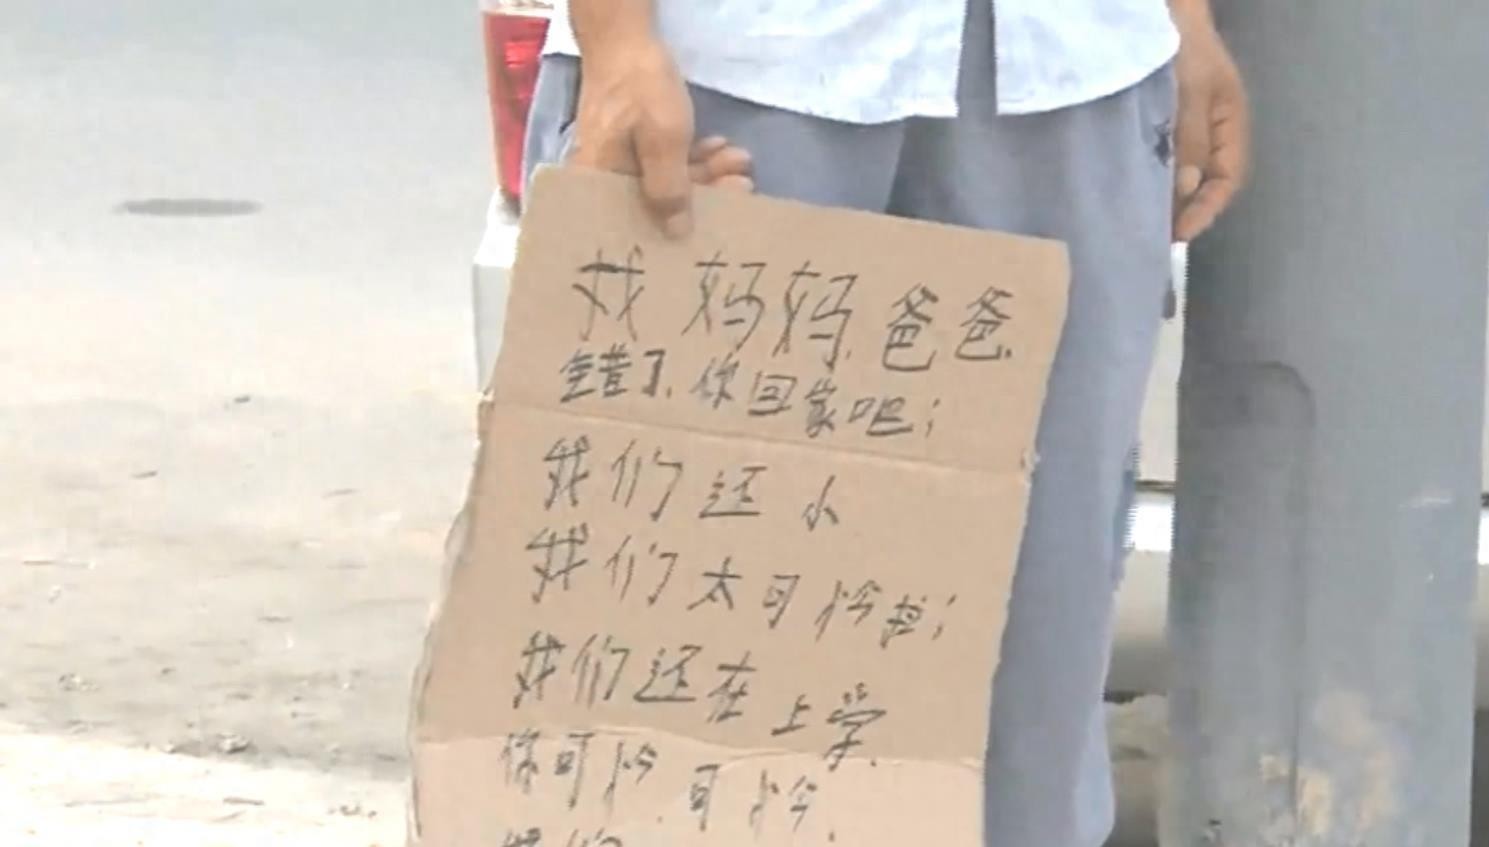 找妈妈,爸爸.
错了.你回家吧;
我们还小
我们太可怜拉;
我们还在上学.
你可怜.可怜.
我们